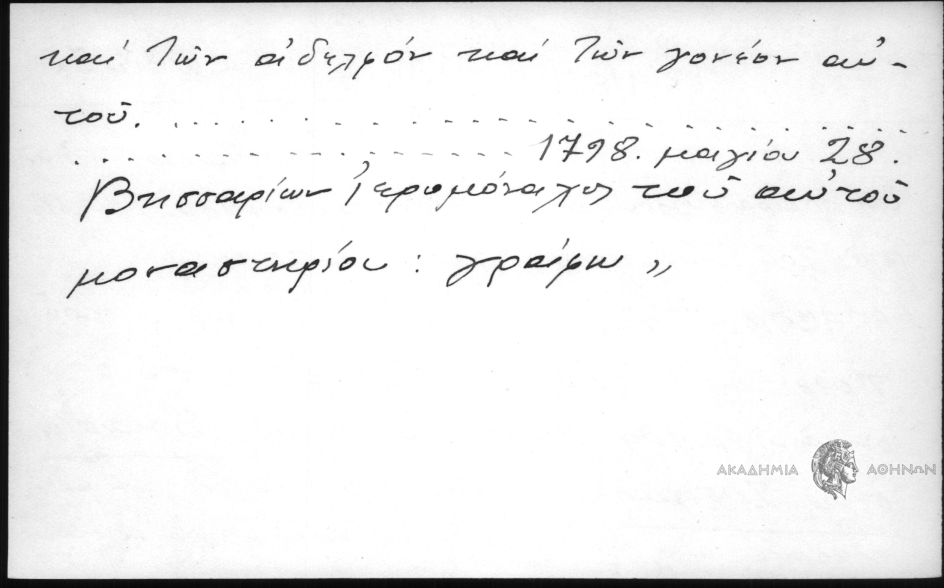 καί τῶν ἀδελφόν καί τῶν γονέον αὐ-
τοῦ. . . . . . . . . . . . . . . . . . . . . . . . . . . .
. . . . . . . . . . . . . . . . . 1798. μαγίου 28.
Βησσαρίων ἱερομόναχος τοῦ αὐτοῦ
μοναστηρίου : γράφω „
ΑΚΑΔΗΜΙΑ ΑΘΗΝΩΝ